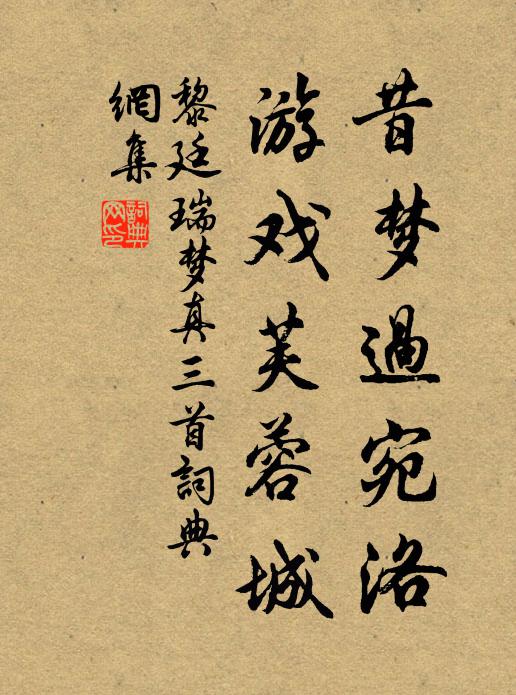 昔梦過宛洛
游戏芙蓉城
黎廷瑞梦真三首詞典
網集
詞典
网印